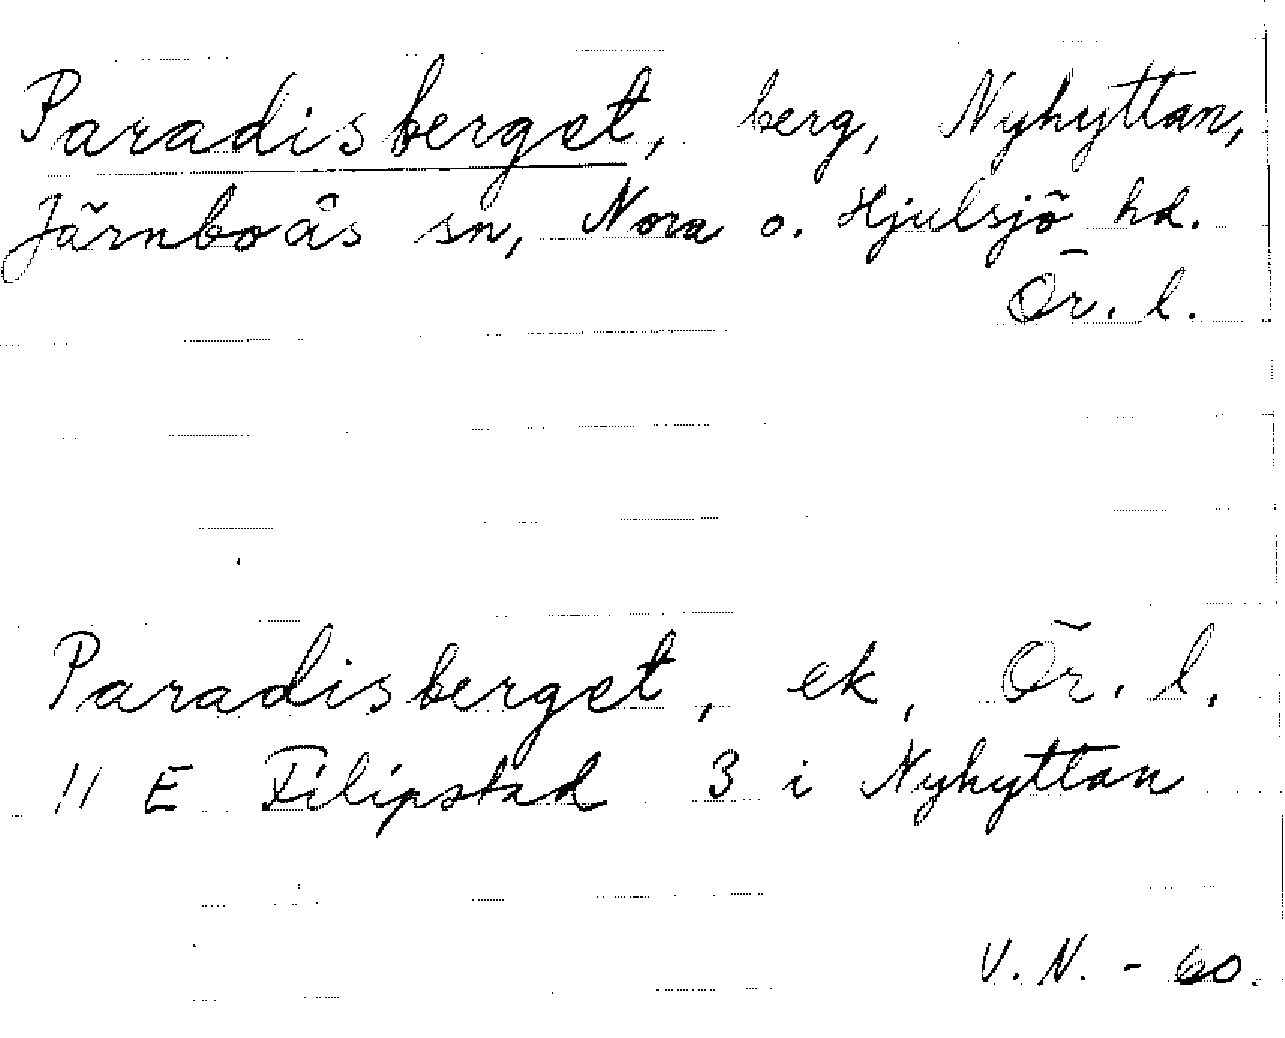 Paradisberget, berg, Nyhyttan,
Järnboås sn, Nora o. Hjulsjö hd.
Ör. l.
Paradisberget, ek, Ör. l.
11 E Filipstad 3 i Nyhyttan
V. N. - 60.